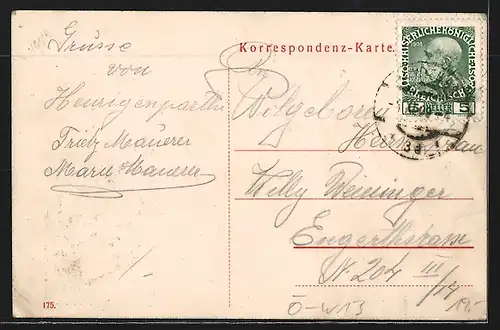 Grüsse
von
Heurigenparthie
Fritz Mauerer
Marie Mauerer
175.
Korrespondenz-Karte
An
Wilgeborn
Herrn
Willy Weininger
Engerthstrasse
Nr. 204 III/14
Ö-W13
KAISERLICHE KÖNIGLICHE ÖSTERREICHISCHE POST
5 HELLER 5